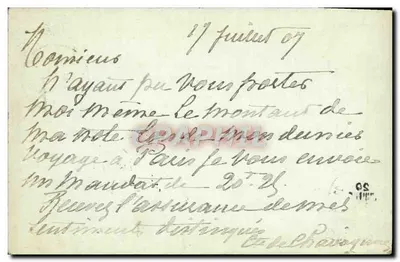 17 juillet 07
Monsieur
N'ayant pu vous porter
moi même le montant de
ma note lors de mon dernier
voyage à Paris je vous envoie
un mandat de 20f 25
Recevez l'assurance de mes
sentiments distingués
Cte de